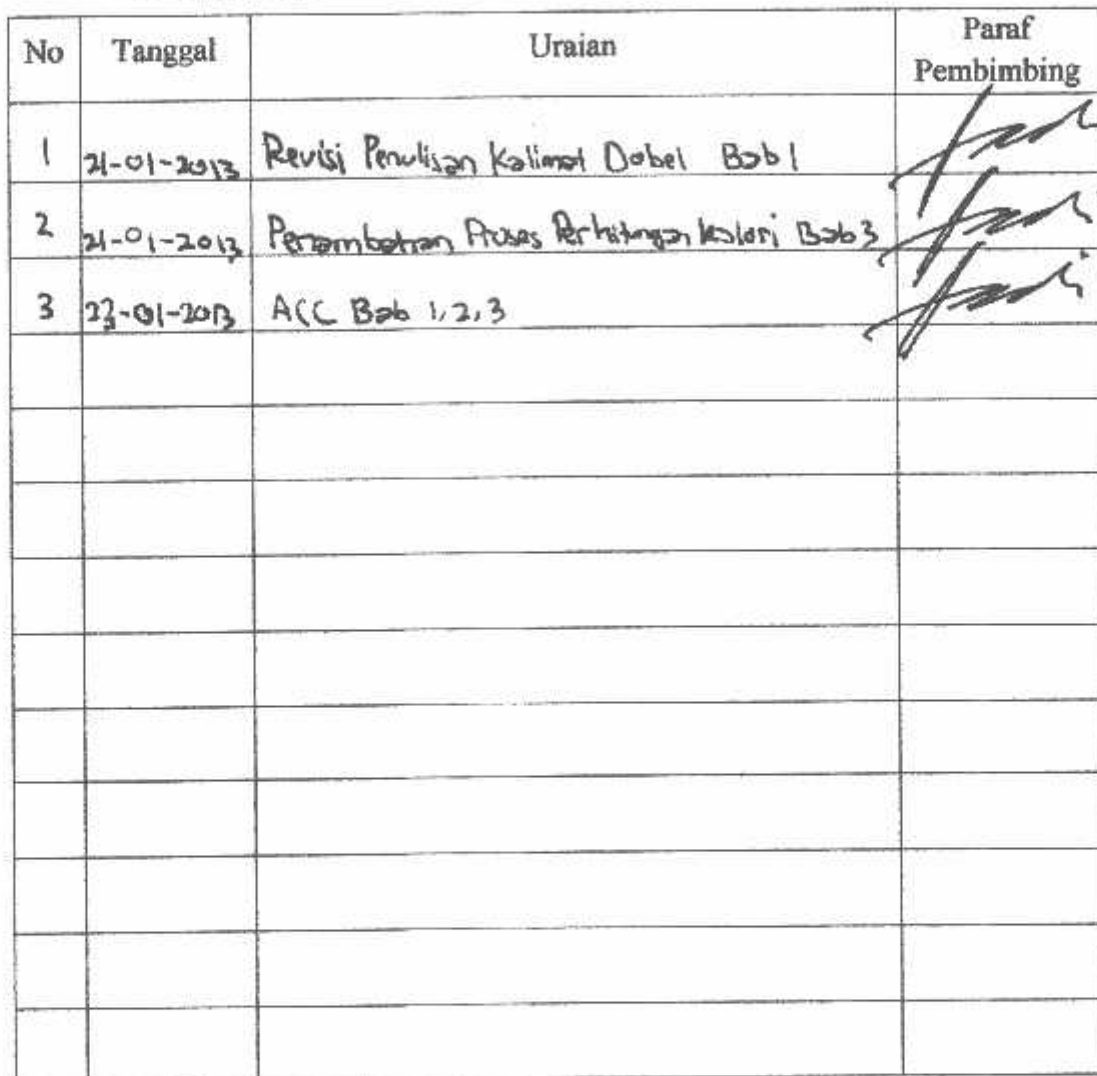 No Tanggal Uraian Paraf Pembimbing
1 21-01-2013 Revisi Penulisan Kalimat Dobel Bab 1
2 21-01-2013 Penambahan Proses Perhitungan kalori Bab 3
3 23-01-2013 ACC Bab 1,2,3